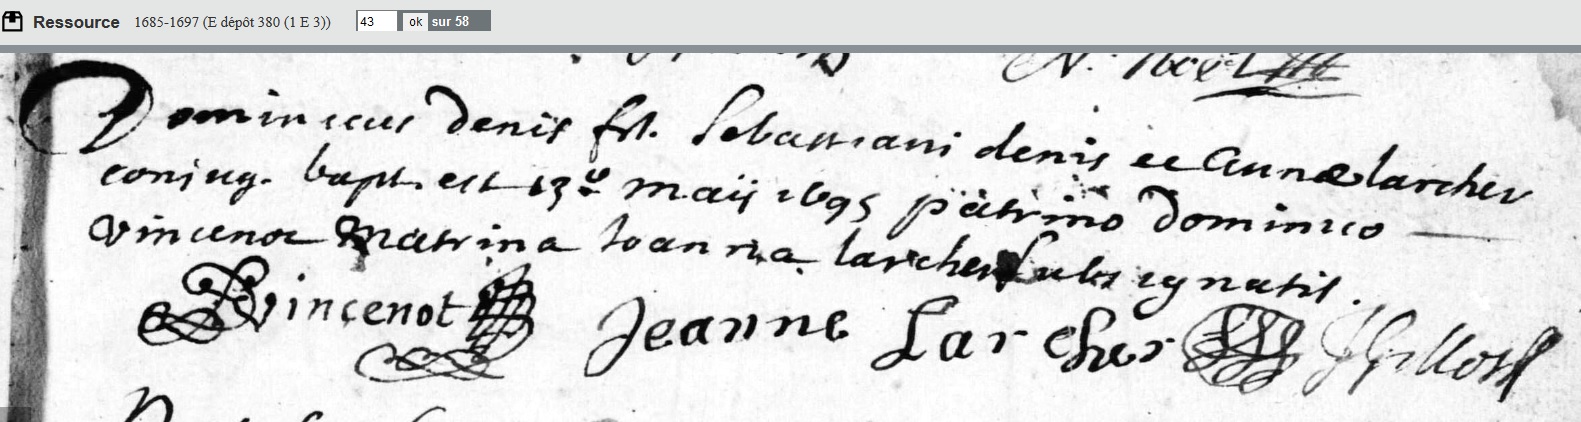 Ressource 1685-1697 (E dépôt 380 (1 E 3)) 43 ok sur 58
Dominicus denis fil. Sebastiani denis et Annæ larcher
conjug. bapt. est 13ª maij 1695 patrino dominico
vincenot Matrina Joanna larcher subsignatis.
vincenot Jeanne Larcher